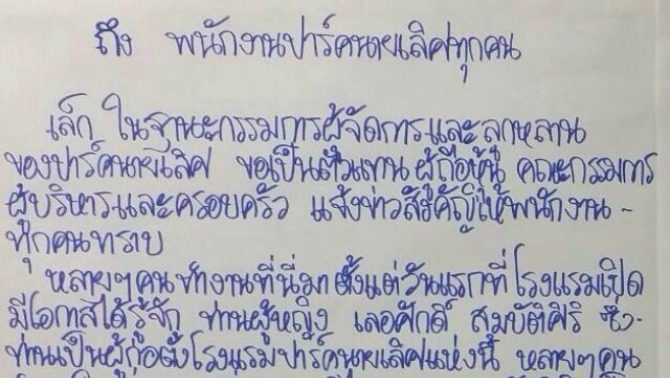 ถึง พนักงานปาร์คนายเลิศทุกคน
เล็ก ในฐานะกรรมการผู้จัดการและลูกหลาน
ของปาร์คนายเลิศ ขอเป็นตัวแทน ผู้ถือหุ้น คณะกรรมการ
ผู้บริหารและครอบครัว แจ้งข่าวสำคัญให้พนักงาน -
ทุกคนทราบ
หลายๆคนทำงานที่นี่มา ตั้งแต่วันแรกที่โรงแรมเปิด
มีโอกาสได้รู้จัก ท่านผู้หญิง เลอศักดิ์ สมบัติศิริ ซึ่ง-
ท่านเป็นผู้ก่อตั้งโรงแรมปาร์คนายเลิศแห่งนี้ หลายๆคน